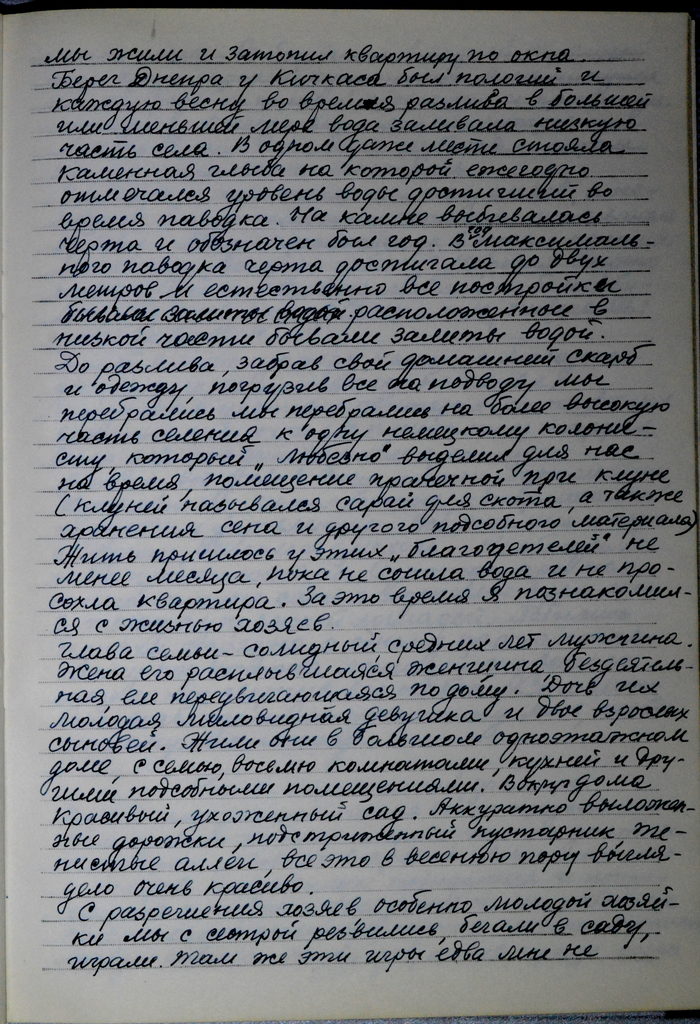 мы жили и затопил квартиру по окна.
Берег Днепра у Кичкаса был пологий и
каждую весну во время разлива в большей
или меньшей мере вода заливала низкую
часть села. В одном даже месте стояла
каменная глыба на которой ежегодно
отмечался уровень воды достигший во
время паводка. На камне выбивалась
черта и обозначен был год. В год максималь-
ного паводка черта достигала до двух
метров и естественно все постройки
бывали залиты водой расположенные в
низкой части бывали залиты водой.
До разлива, забрав свой домашний скарб
и одежду, погрузив все на подводу мы
перебрались мы перебрались на более высокую
часть селения к одну немецкому колони-
сту, который „любезно" выделил для нас
на время, помещение прачечной при клуне
(клуней назывался сарай для скота, а также
хранения сена и другого подсобного материала)
Жить пришлось у этих „благодетелей" не
менее месяца, пока не сошла вода и не про-
сохла квартира. За это время я познакомил-
ся с жизнью хозяев.
Глава семьи - солидный средних лет мужчина.
Жена его расплывшаяся женщина бездеятель-
ная, еле передвигающаяся по дому. Дочь их
молодая миловидная девушка и двое взрослых
сыновей. Жили они в большом одноэтажном
доме, с семью, восемью комнатами, кухней и дру-
гими подсобными помещениями. Вокруг дома
красивый, ухоженный сад. Аккуратно выложен-
ные дорожки, подстриженный кустарник, те-
нистые аллеи, все это в весеннюю пору выгля-
дело очень красиво.
С разрешения хозяев особенно, молодой хозяй-
ки мы с сестрой резвились, бегали в саду,
играли. Там же эти игры едва мне не